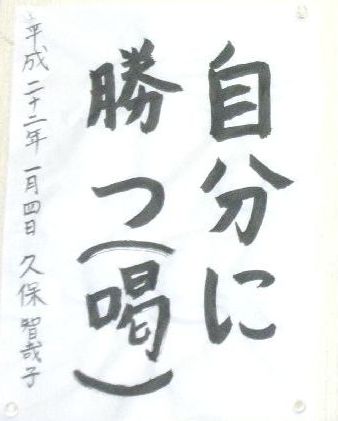 自分に
勝つ(喝)
平成二十二年 一月四日 久保 智哉子